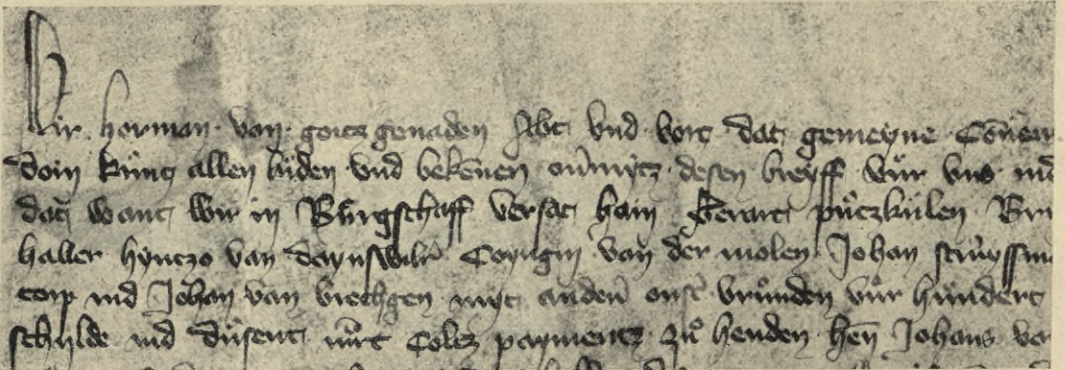 Wir herman van gotz genaden Abt vnd vort dat gemeyne Cōuen
doin kunt allen luden vnd bekēnen ouermytz desen brieff vur vns ind
dat want wir in Burgschaff versat hain Gerart putzkulen Bru
haller hyntzo van daynswilr Coyngin van der molen Johan struyssin
torp ind Johan van vrechgen myt anderē onsē vrunden vur hundert
schilde ind dusent mrc Colcz paymentz zu henden hēn Johans va